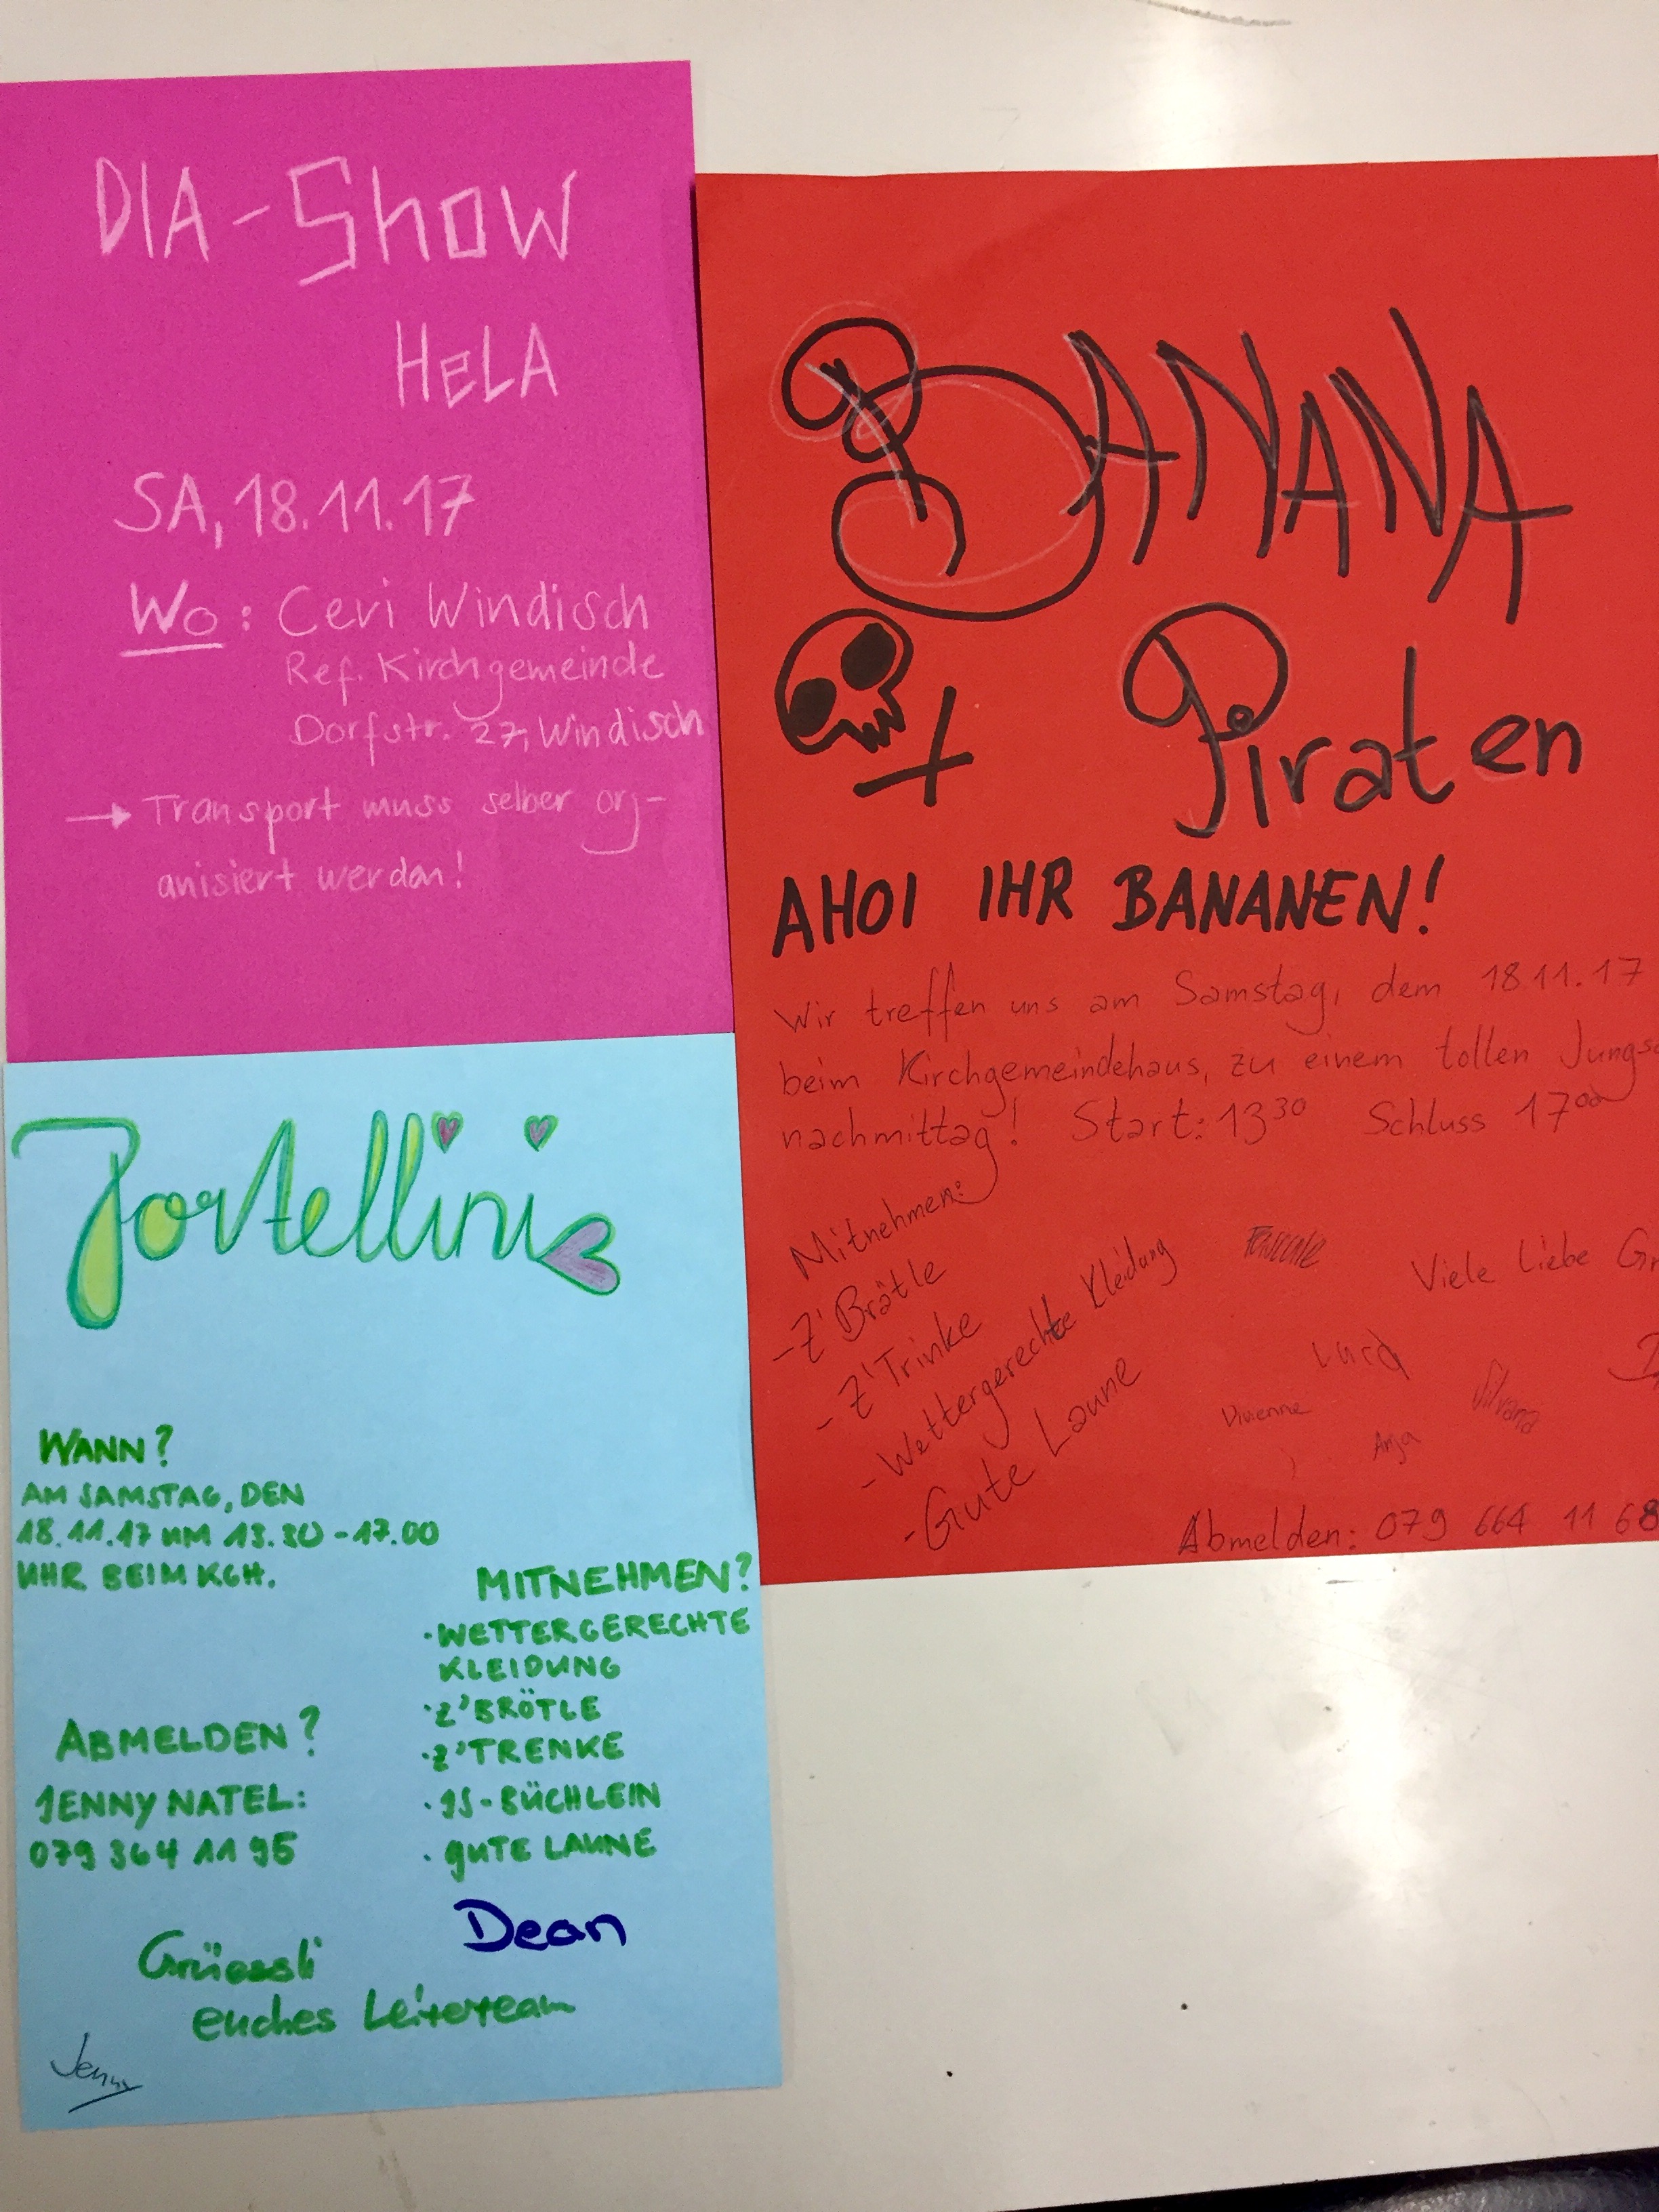 DIA-Show
HeLA
SA, 18.11.17
Wo: Cevi Windisch
Ref. Kirchgemeinde
Dorfstr. 27, Windisch
→ Transport muss selber org-
anisiert werden!
BANANA
Piraten
AHOI IHR BANANEN!
Wir treffen uns am Samstag, dem 18.11.17
beim Kirchgemeindehaus, zu einem tollen Jungsc
nachmittag! Start: 13³⁰ Schluss 17⁰⁰
Mitnehmen:
- Z'Brötle
- Z'Trinke
- Wettergerechte Kleidung
- Gute Laune
Viele Liebe Gr
Luca
Vivienne
Silvana
Anja
Abmelden: 079 664 11 68
Tortellini
WANN?
AM SAMSTAG, DEN
18.11.17 UM 13.30 - 17.00
UHR BEIM KGH.
MITNEHMEN?
· WETTERGERECHTE
KLEIDUNG
· Z'BRÖTLE
· Z'TRENKE
· JS-BÜCHLEIN
· GUTE LAUNE
ABMELDEN?
JENNY NATEL:
079 364 11 95
Dean
Grüessli
euches Leiterteam
Jenny